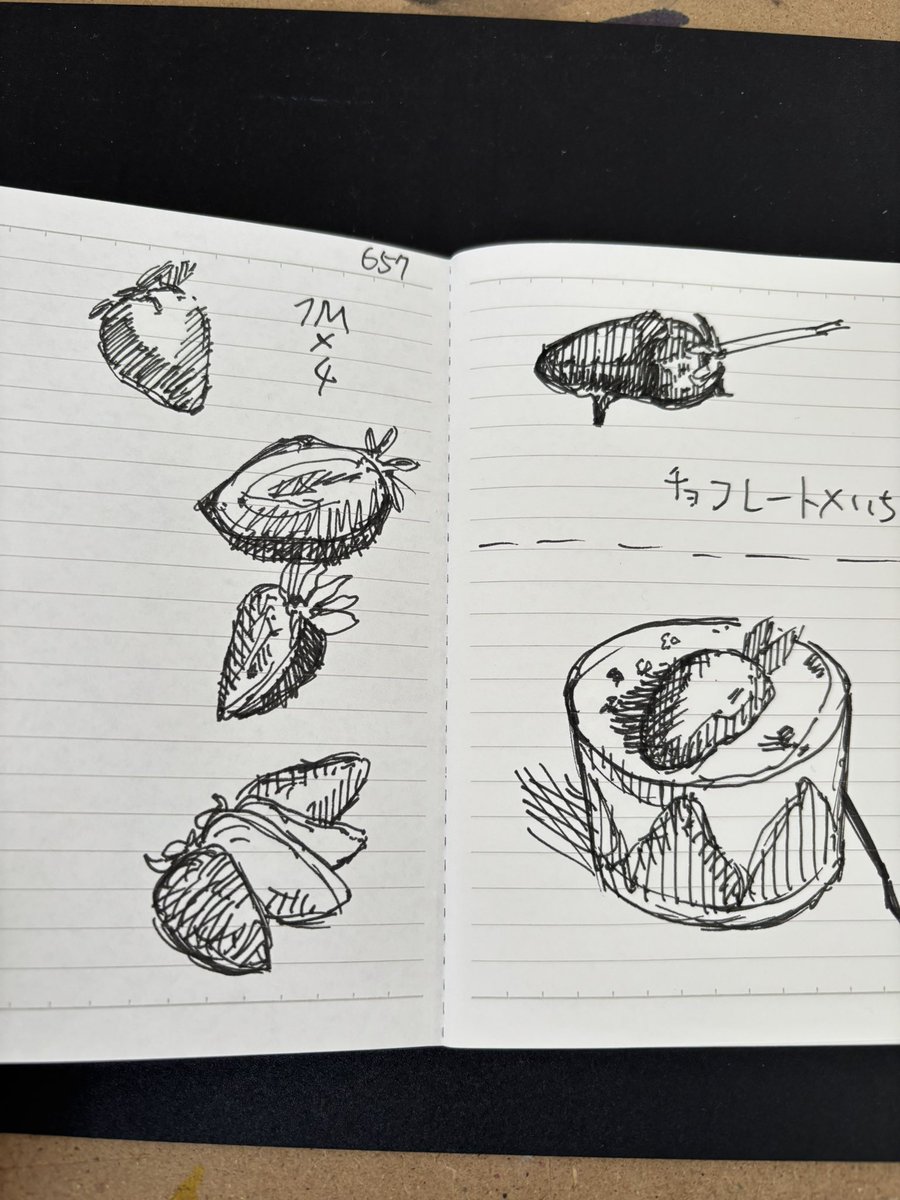 657
1M
×
4
チョコレート×いち